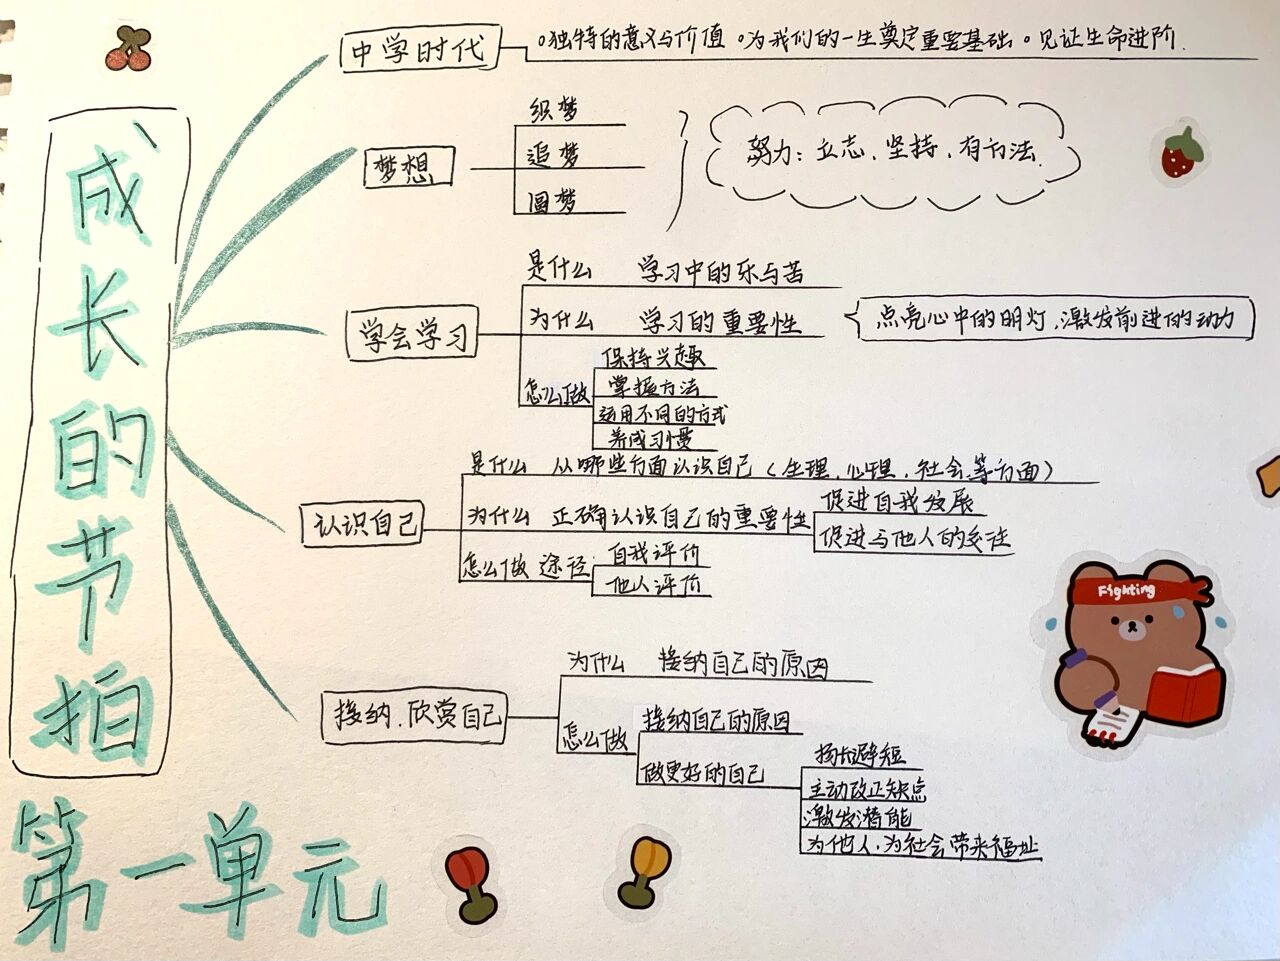 成长的节拍
第一单元
中学时代
。独特的意义与价值 。为我们的一生奠定重要基础 。见证生命进阶.
梦想
织梦
追梦
圆梦
努力:立志、坚持、有方法.
学会学习
是什么 学习中的乐与苦
为什么 学习的重要性
点亮心中的明灯,激发前进的动力
怎么做
保持兴趣
掌握方法
运用不同的方式
养成习惯
认识自己
是什么 从哪些方面认识自己(生理、心理、社会等方面)
为什么 正确认识自己的重要性
促进自我发展
促进与他人的交往
怎么做 途径
自我评价
他人评价
接纳、欣赏自己
为什么 接纳自己的原因
怎么做
接纳自己的原因
做更好的自己
扬长避短
主动改正缺点
激发潜能
为他人、为社会带来福址
Fighting